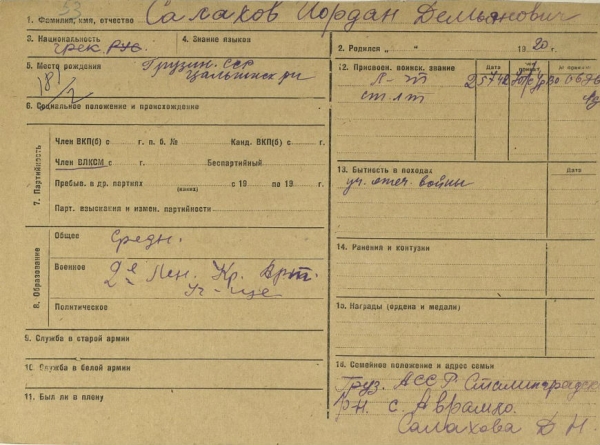 1. Фамилия, имя, отчество Салахов Иордан Демьянович
3. Национальность
грек рус.
4. Знание языков
2. Родился „ “ 1920 г.
5. Место рождения Грузин. ССР
18 1/2
12. Присвоен. воинск. звание
Дата
Л-т
ст. л-т
6. Социальное положение и происхождения
7. Партийность
Член ВКП(б) с г. п. б. № Канд. ВКП(б) с г.
Член ВЛКСМ с г. Беспартийный
Пребыв. в др. партиях с 19 по 19 г.
(каких)
Парт. взыскания и измен. партийности
13. Бытность в походах
Дата
уч. отеч. войны
8. Образование
Общее Средн.
Военное 2е Лен. Кр. Арт.
Уч-ще
Политическое
14. Ранения и контузии
15. Награды (ордена и медали)
9. Служба в старой армии
10. Служба в белой армии
11. Был ли в плену
16. Семейное положение и адрес семьи
Груз. АССР
р-н. с.
Салахова Д Н